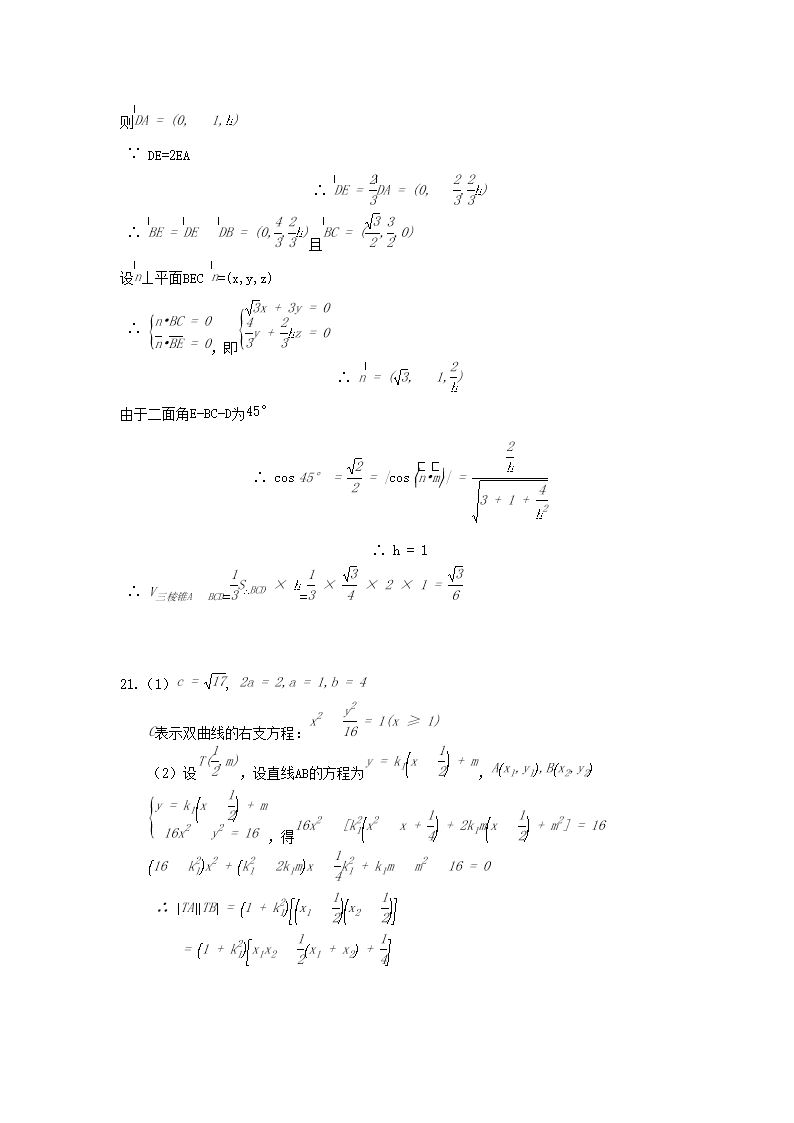 则DA = (0, 1,h)
∵ DE=2EA
∴ DE = 2/3 DA = (0, 2/3, 2/3 h)
∴ BE = DE DB = (0, 4/3, 2/3 h)且BC = (√3/2, 3/2, 0)
设n⊥平面BEC n=(x,y,z)
∴ { n•BC = 0 n•BE = 0 ,即{ √3x + 3y = 0 4/3 y + 2/3 hz = 0
∴ n = (√3, 1, 2/h)
由于二面角E-BC-D为45°
∴ cos 45° = √2/2 = |cos⟨n•m⟩| = (2/h)/√(3 + 1 + 4/h²)
∴ h = 1
∴ V三棱锥A BCD=1/3 S∴BCD × h=1/3 × √3/4 × 2 × 1 = √3/6
21.(1) c = √17, 2a = 2,a = 1,b = 4
C表示双曲线的右支方程: x² y²/16 = 1(x ≥ 1)
(2)设T(1/2, m),设直线AB的方程为y = k₁(x 1/2) + m,A(x₁,y₁),B(x₂,y₂)
{ y = k₁(x 1/2) + m 16x² y² = 16 ,得16x² [k₁²(x² x + 1/4) + 2k₁m(x 1/2) + m²] = 16
(16 k₁²)x² + (k₁² 2k₁m)x 1/4 k₁² + k₁m m² 16 = 0
∴ |TA||TB| = (1 + k₁²)[(x₁ 1/2)(x₂ 1/2)]
= (1 + k₁²)[x₁x₂ 1/2(x₁ + x₂) + 1/4]